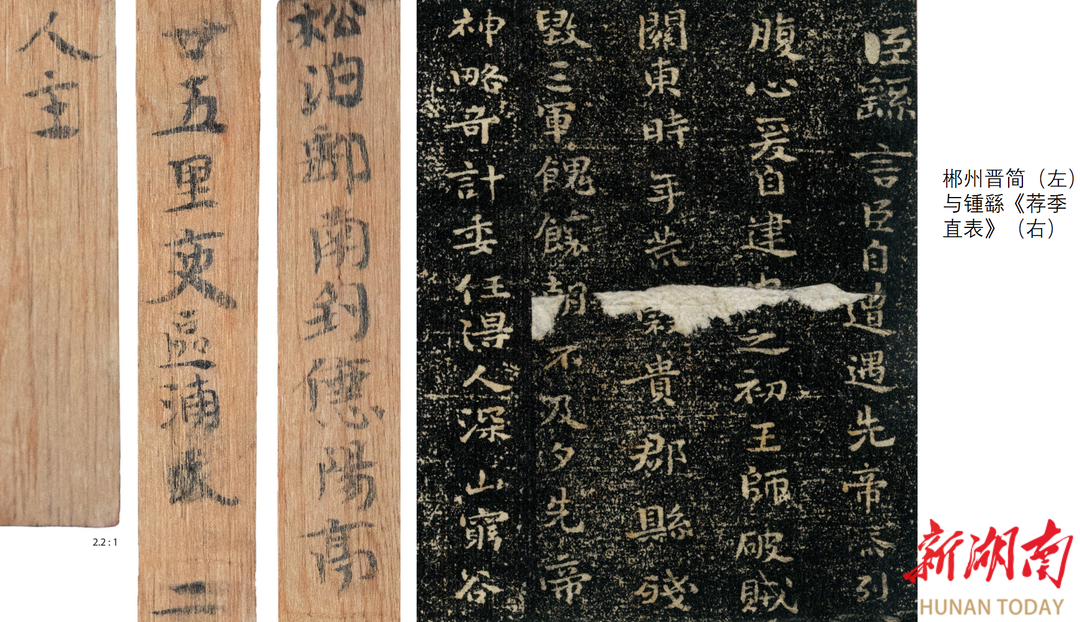 松泊郵南到德陽亭
廿五里吏區浦民 二
人主
2.2 : 1
臣繇言臣自遭遇先帝忝列
腹心爰自建安之初王師破賊
關東時年荒穀貴郡縣殘
毀三軍餽饟朝不及夕先帝
神略奇計委任得人深山窮谷
郴州晋简（左）
与锺繇《荐季
直表》（右）
新湖南
HUNAN TODAY